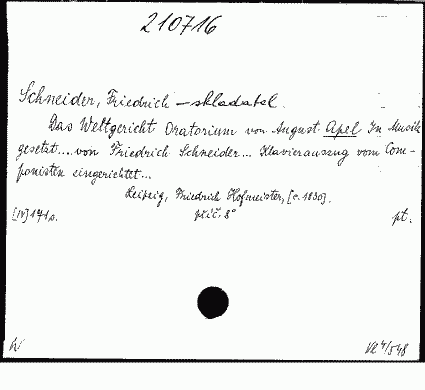 210716
Schneider, Friedrich – skladatel
Das Weltgericht Oratorium von August Apel In Musik
gesetzt.... von Friedrich Schneider... Klavierauszug vom Com-
ponisten eingerichtet...
Leipzig, Friedrich Hofmeister, [c. 1830].
[IV] 171 s. příč. 8° pt.
W